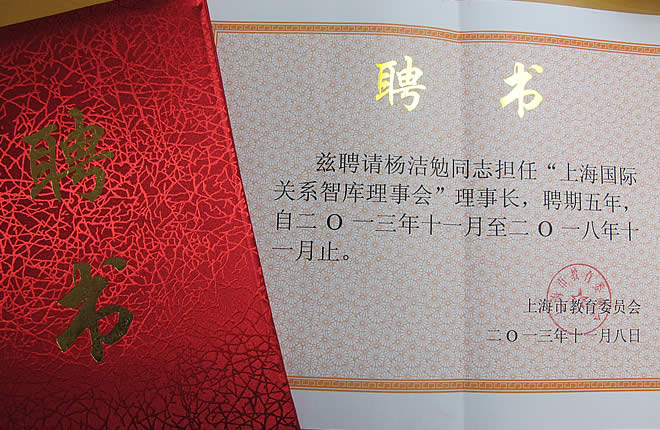 聘
书
聘书
兹聘请杨洁勉同志担任“上海国际
关系智库理事会”理事长，聘期五年，
自二O一三年十一月至二O一八年十
一月止。
上海市教育委员会
二O一三年十一月八日